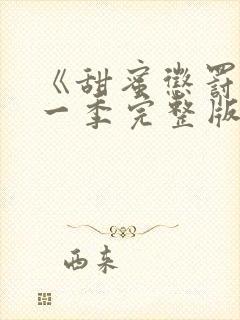 《甜蜜惩罚
一季完整版
西来